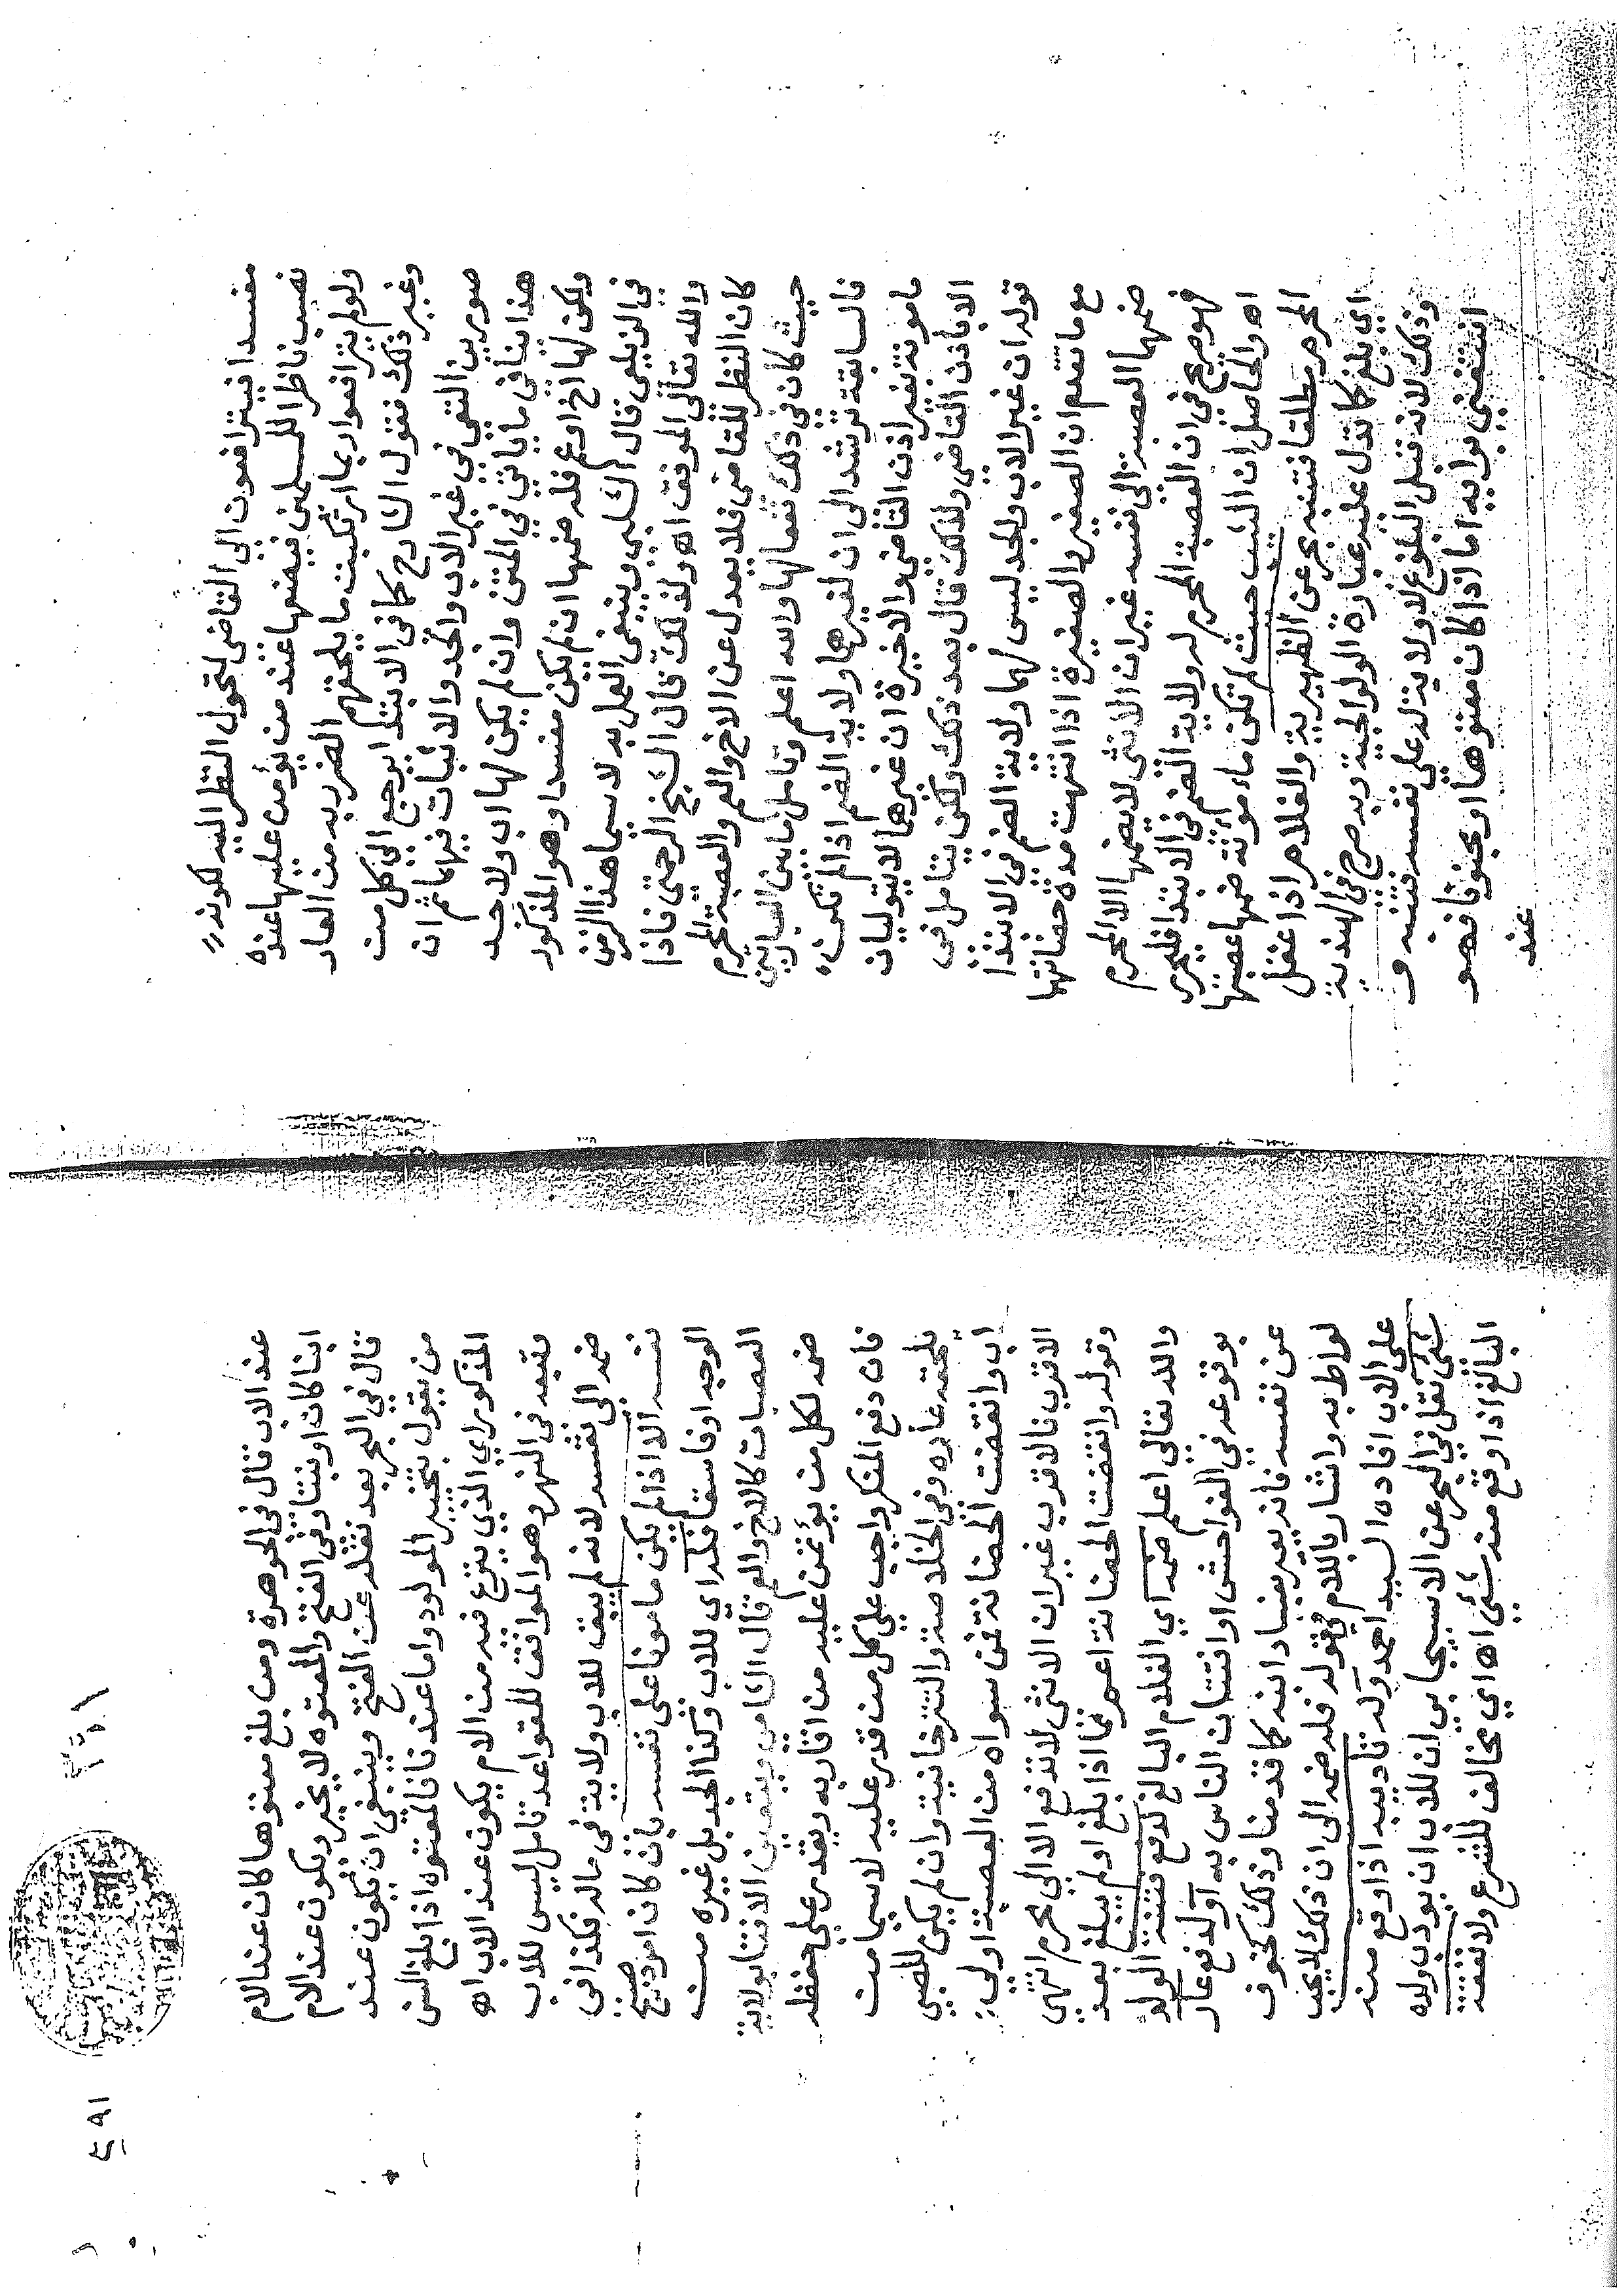 مفسدا فيترافعون الي القاضي لتحول النظر اليه لكونه
نصب ناظرا للمسلمين فيضعها عند من يؤمن عليها عنده
ولو لم يترافعوا ربما ارتكبت ما يلحقهم الضرر به من العار
وغير ذلك فقول الشارح كما في الابتدا يرجع الي كل من
صورتين النفي في غير الاب والجد والاثبات فيهما ثم ان
هذا ينافي ما ياتي في المتن وان لم يكن لها اب ولا جد
ولكن لها اخ او عم فله ضمها ان لم يكن مفسدا وهو المذكور
في الزيلعي قال الشلبي وينبغي العمل به لا سيما هذا الزمن
والله تعالي الموفق اه ولذلك قال الشيخ الرحمتي فاذا
كان النظر للقاضي فلا يعدل عن الاخ والعم والعصبة المحرم
حيث كان في ذلك نفعا لها والله اعلم وتامل ما بين العبارتين
فالسابقة ترشد الي ان لغيرهما ولاية الضم اذا لم تكن
مامونة بغير اذن القاضي والاخيرة ان غيرهما لا يتوليان
الا باذن القاضي ولذلك قال بعد ذلك ولكن يتامل في
قوله ان غير الاب والجد ليس لهما ولاية الضم في الابتدا
مع ما تقدم ان الصغير والصغيرة اذا انتهت مدة حضانتها
ضمها العصبة الي نفسه غير ان الانثي لا يضمها الا المحرم
فهو صريح في ان العصبة المحرم له ولاية الضم في الابتدا فليحرر
اه والحاصل ان الثيب حيث لم تكن مامونة ضمها عصبتها
المحرم مطلقا فتنبه بحر عن الظهيرية والغلام اذا عقل
اي بلغ كما تدل عليه عبارة الولوالجية وبه صرح في الهندية
وذلك لانه قبل البلوغ لا ولاية له علي نفسه فتنبه و
استغني برايه اما اذا كان معتوها او مجنونا فهو
عند
٤٩١
عند الاب قال في الجوهرة ومن بلغ معتوها كان عند الام
ابنا كان او بنتا وفي الفتح والمعتوه لا يخير ويكون عند الام
قال في البحر بعد نقله عن الفتح وينبغي ان يكون عند
من يقول بتخيير المولود واما عندنا فالمعتوه اذا بلغ السن
المذكور اي الذي ينزع فيه من الام يكون عند الاب اه
وتبعه في النهر وهو الموافق للقواعد تامل ليس للاب
ضمه الي نفسه لانه لم يبق للاب ولاية في ماله فكذا في
نفسه الا اذا لم يكن مامونا علي نفسه بان كان امرد صبيح
الوجه او فاسقا فله اي للاب وكذا الجد بل غيره من
العصبات كالاخ والعم قال الشامي ويتعين الافتا بولاية
ضمه لكل من يؤتمن عليه من اقاربه ويقدر علي حفظه
فان دفع المنكر واجب علي كل من قدر عليه لا سيما من
يلحقه عاره وفي الخلاصة والتترخانية وان لم يكن للصبي
اب وانقضت الحضانة فمن سواه من العصبة اولي
الاقرب فالاقرب غير ان الانثي لا تدفع الا الي محرم انتهي
وقوله وانقضت الحضانة اعم مما اذا بلغ او لم يبلغ بعد
والله تعالي اعلم ضمه اي الغلام البالغ لدفع فتنة الولد
بوقوعه في الفواحش او افتتان الناس به او لدفع عار
عن نفسه فانه يعير بفساد ابنه كما قدمنا وذلك كخوف
لواط به واشار باللام في قوله فله ضمه الي ان ذلك لا يجب
علي الاب افاده السيد احمد وله تاديبه اذا وقع منه
شئ نقل في البحر عن الاسبيجابي ان للاب ان يودب ولده
البالغ اذا وقع منه شئ اه اي مخالف للشرع ولا نفقة